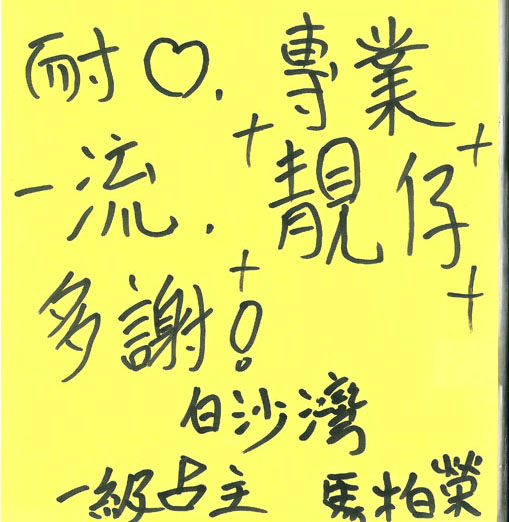 耐♡. 專業
一流. 靚仔
多謝!
白沙灣
一級占主 馬柏榮